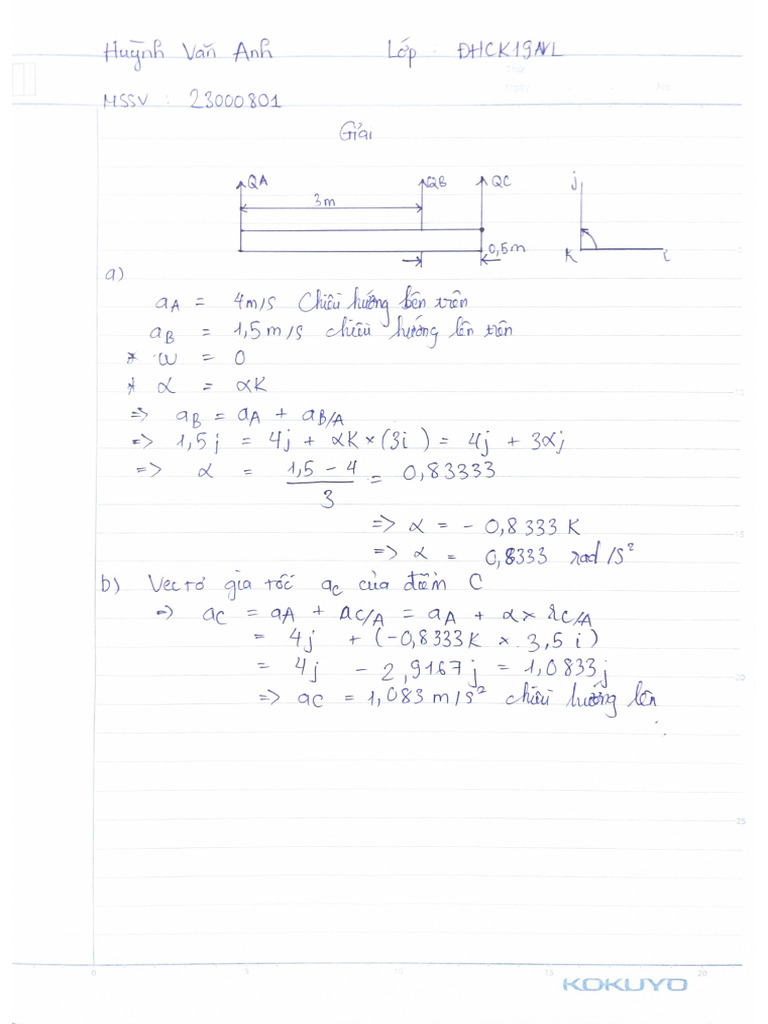 Huỳnh Văn Anh Lớp : ĐHCK19AVL
MSSV : 23000801
Giải
QA QB QC j
3m
0,5m K i
a)
aA = 4m/s Chiều hướng bên trên
aB = 1,5m/s chiều hướng lên trên
* ω = 0
* α = αK
=> aB = aA + aB/A
=> 1,5j = 4j + αK×(3i) = 4j + 3αj
=> α = (1,5 - 4)/3 = 0,83333
=> α = - 0,8333 K
=> α = 0,8333 rad/s²
b) Vectơ gia tốc aC của điểm C
=> aC = aA + aC/A = aA + α× rC/A
= 4j + (-0,8333K × 3,5i)
= 4j - 2,9167j = 1,0833j
=> aC = 1,083 m/s² chiều hướng lên
5 10 15 20 25
0 5 10 15 20
KOKUYO